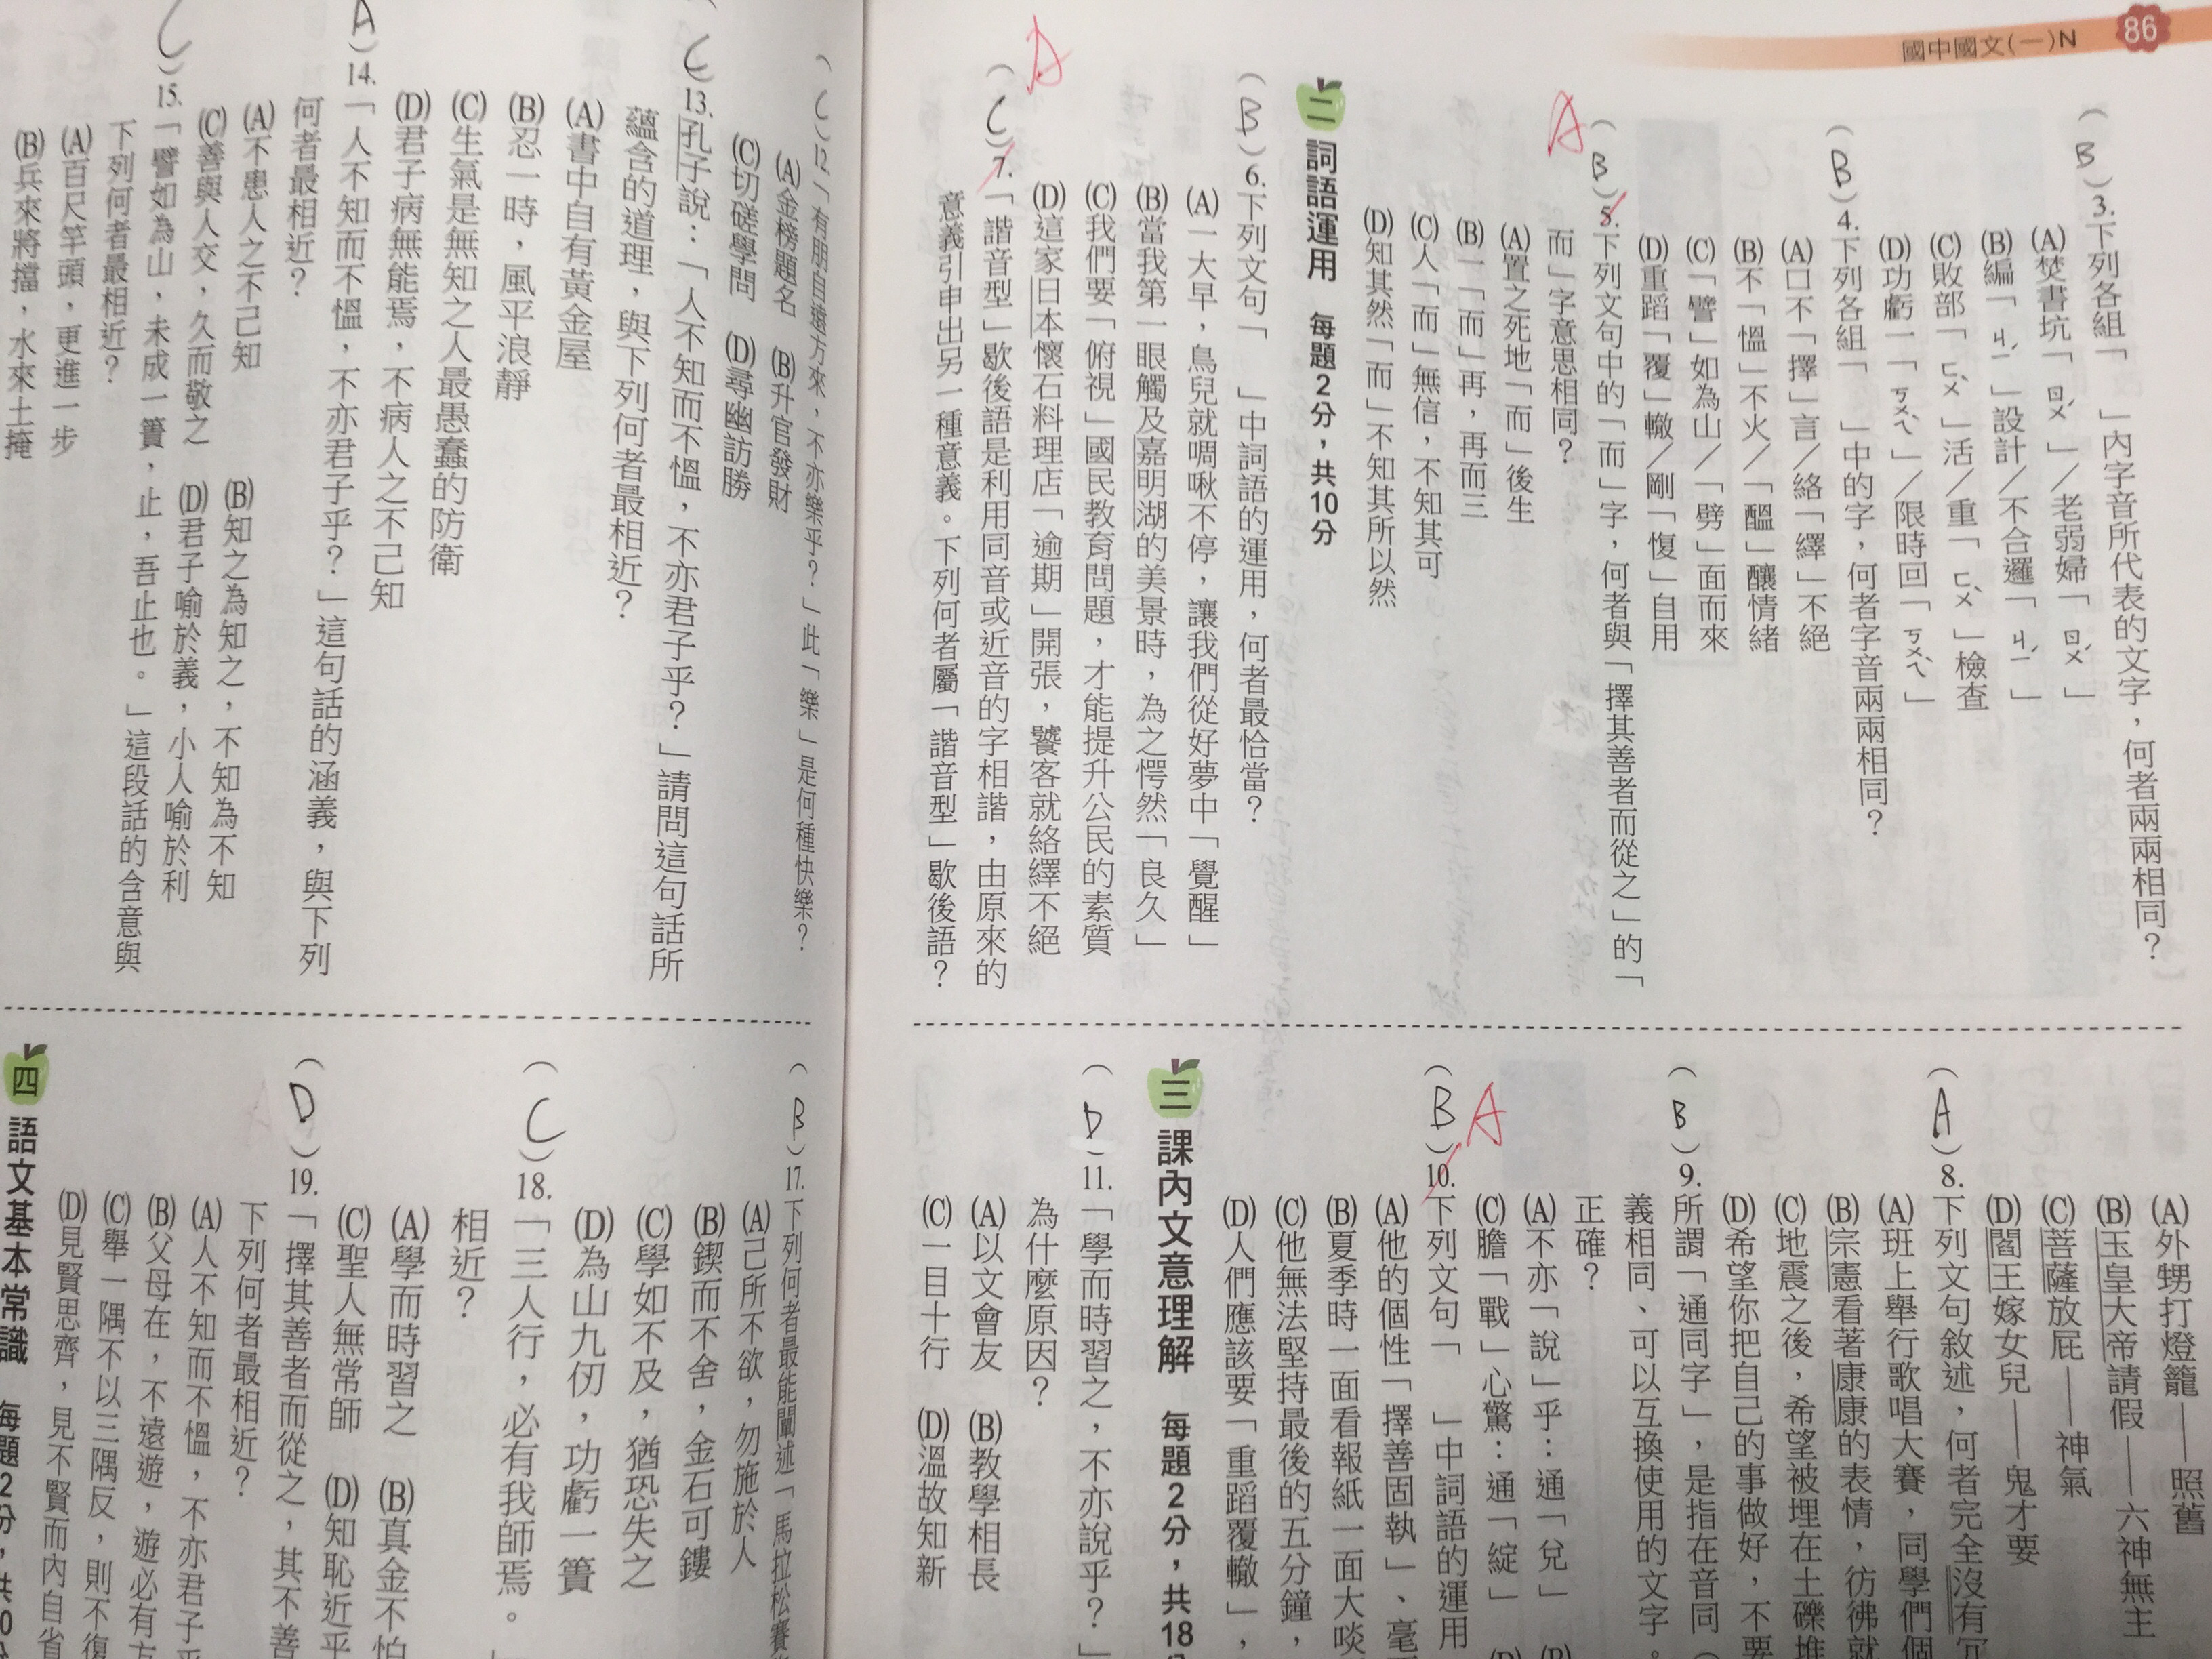 國中國文(一)N 86
(B)3.下列各組「　」內字音所代表的文字，何者兩兩相同？
(A)焚書坑「ㄖㄨˊ」／老弱婦「ㄖㄨˊ」
(B)編「ㄐㄧˊ」設計／不合邏「ㄐㄧˊ」
(C)敗部「ㄈㄨˋ」活／重「ㄈㄨˋ」檢查
(D)功虧一「ㄎㄨㄟˋ」／限時回「ㄎㄨㄟˋ」
(B)4.下列各組「　」中的字，何者字音兩兩相同？
(A)口不「擇」言／絡「繹」不絕
(B)不「慍」不火／「醞」釀情緒
(C)「譬」如為山／「劈」面而來
(D)重蹈「覆」轍／剛「愎」自用
A
(B)5.下列文句中的「而」字，何者與「擇其善者而從之」的「
而」字意思相同？
(A)置之死地「而」後生
(B)一「而」再，再而三
(C)人「而」無信，不知其可
(D)知其然「而」不知其所以然
二 詞語運用 每題2分，共10分
(B)6.下列文句「　」中詞語的運用，何者最恰當？
(A)一大早，鳥兒就啁啾不停，讓我們從好夢中「覺醒」
(B)當我第一眼觸及嘉明湖的美景時，為之愕然「良久」
(C)我們要「俯視」國民教育問題，才能提升公民的素質
(D)這家日本懷石料理店「逾期」開張，饕客就絡繹不絕
D
(C)7.「諧音型」歇後語是利用同音或近音的字相諧，由原來的
意義引申出另一種意義。下列何者屬「諧音型」歇後語？
(A)外甥打燈籠——照舊
(B)玉皇大帝請假——六神無主
(C)菩薩放屁——神氣
(D)閻王嫁女兒——鬼才要
(A)8.下列文句敘述，何者完全沒有冗
(A)班上舉行歌唱大賽，同學們個
(B)宗憲看著康康的表情，彷彿就
(C)地震之後，希望被埋在土礫堆
(D)希望你把自己的事做好，不要
(B)9.所謂「通同字」，是指在音同
義相同、可以互換使用的文字。
正確？
(A)不亦「說」乎：通「兌」
(C)膽「戰」心驚：通「綻」
A
(B)10.下列文句「　」中詞語的運用
(A)他的個性「擇善固執」、毫
(B)夏季時一面看報紙一面大啖
(C)他無法堅持最後的五分鐘，
(D)人們應該要「重蹈覆轍」，
三 課內文意理解 每題2分，共18
(D)11.「學而時習之，不亦說乎？」
為什麼原因？
(A)以文會友 (B)教學相長
(C)一目十行 (D)溫故知新
(C)12.「有朋自遠方來，不亦樂乎？」此「樂」是何種快樂？
(A)金榜題名 (B)升官發財
(C)切磋學問 (D)尋幽訪勝
(C)13.孔子說：「人不知而不慍，不亦君子乎？」請問這句話所
蘊含的道理，與下列何者最相近？
(A)書中自有黃金屋
(B)忍一時，風平浪靜
(C)生氣是無知之人最愚蠢的防衛
(D)君子病無能焉，不病人之不己知
(A)14.「人不知而不慍，不亦君子乎？」這句話的涵義，與下列
何者最相近？
(A)不患人之不己知 (B)知之為知之，不知為不知
(C)善與人交，久而敬之 (D)君子喻於義，小人喻於利
(C)15.「譬如為山，未成一簣，止，吾止也。」這段話的含意與
下列何者最相近？
(A)百尺竿頭，更進一步
(B)兵來將擋，水來土掩
(B)17.下列何者最能闡述「馬拉松賽
(A)己所不欲，勿施於人
(B)鍥而不舍，金石可鏤
(C)學如不及，猶恐失之
(D)為山九仞，功虧一簣
(C)18.「三人行，必有我師焉。」
相近？
(A)學而時習之 (B)真金不怕
(C)聖人無常師 (D)知恥近乎
(D)19.「擇其善者而從之，其不善
下列何者最相近？
(A)人不知而不慍，不亦君子乎
(B)父母在，不遠遊，遊必有方
(C)舉一隅不以三隅反，則不復
(D)見賢思齊，見不賢而內自省
四 語文基本常識 每題2分，共